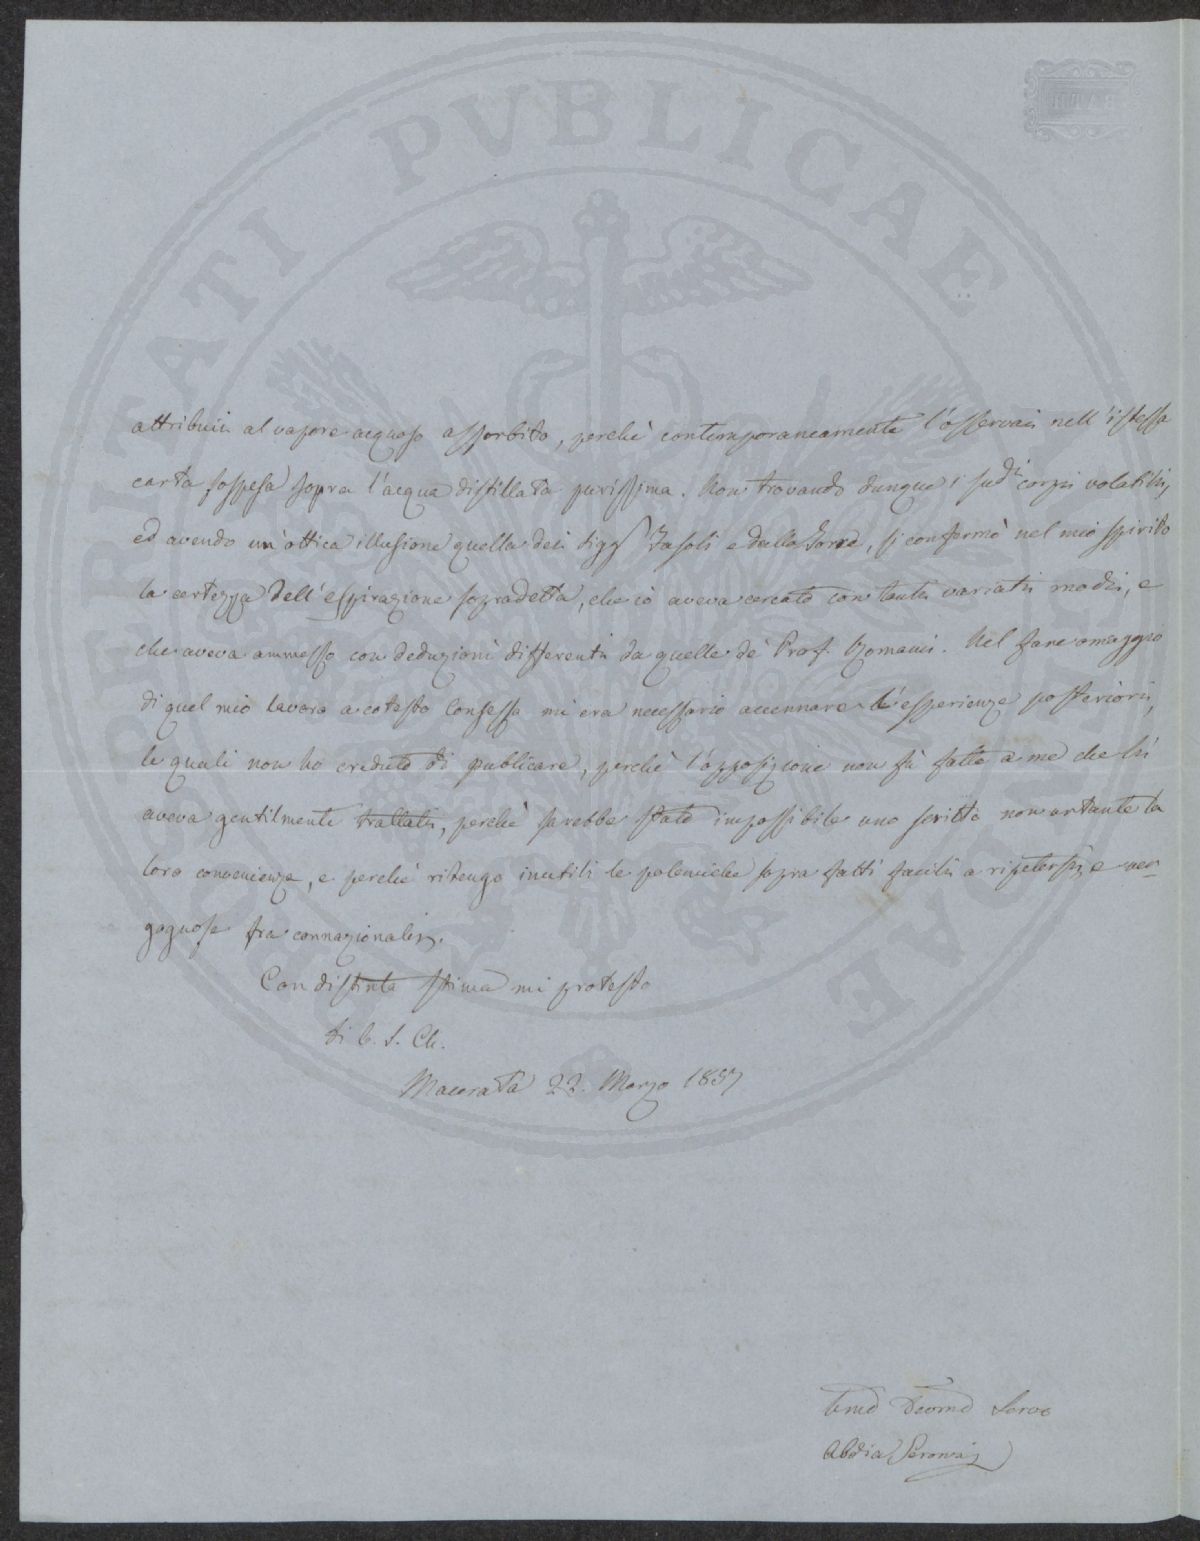 attribuii al vapore acquoso assorbito, perchè contemporaneamente l'osservai nell'istessa
carta sospesa sopra l'acqua distillata purissima. Non trovando dunque i sudi corpi volatili,
ed avendo un'ottica illusione quella dei Sigg Fasoli e dalla Torre, si confermò nel mio spirito
la certezza dell'espirazione sopradetta, che io aveva cercato con tanti variati modi, e
che aveva ammesso con deduzioni differenti da quelle de Prof. Nel fare omaggio
di quel mio lavoro a cotesto Consesso mi era necessario accennare l'esperienze posteriori,
le quali non ho creduto di publicare, perchè l'opposizione non fù fatta a me che li
aveva gentilmente trattati, perchè sarebbe stato impossibile uno scritto non urtante la
loro convenienza, e perchè ritengo inutili le polemiche sopra fatti facili a ripetersi, e ver-
gognose fra connazionali.
Con distinta stima mi protesto
di V. S. Ch.
Macerata 22. Marzo 1857
Servo
Abdia
PROSPERITATI PVBLICAE AVGENDAE
BATH